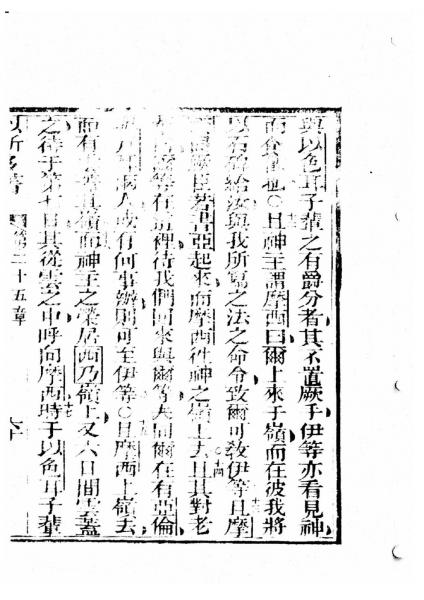 與以色耳子輩之有爵分者其不置厥手伊等亦看見神
而食飲也○且神主謂摩西曰爾上來于嶺而在彼我將
以石碑給汝與我所寫之法之命令致爾可教伊等且摩
厥臣若書亞起來而摩西往神之嶺上去且其對老
爾等在這裡待我們回來與爾等夫同爾在有亞倫
耳兩人或有何事辦則可至伊等○且摩西上嶺去
而有雲蓋其嶺而神主之榮居西乃嶺上又六日間雲蓋
之待于第七日其從雲之中呼向摩西時于以色耳子輩
以所多書 第二十五章